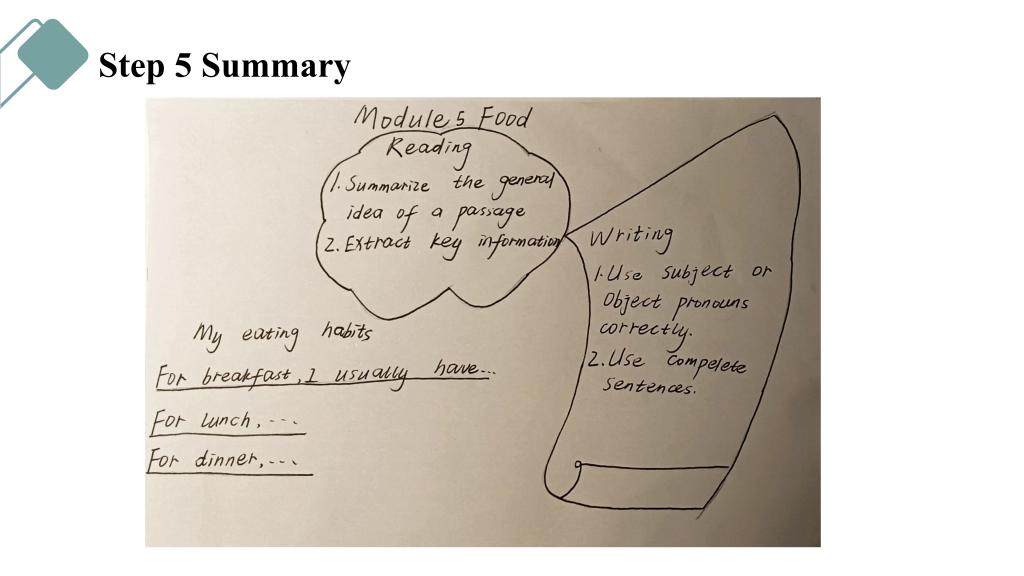 Step 5 Summary
Module 5 Food
Reading
1. Summarize the general
idea of a passage
2. Extract key information
Writing
1. Use subject or
Object pronouns
correctly.
2. Use compelete
sentences.
My eating habits
For breakfast, I usually have...
For lunch, ...
For dinner, ...